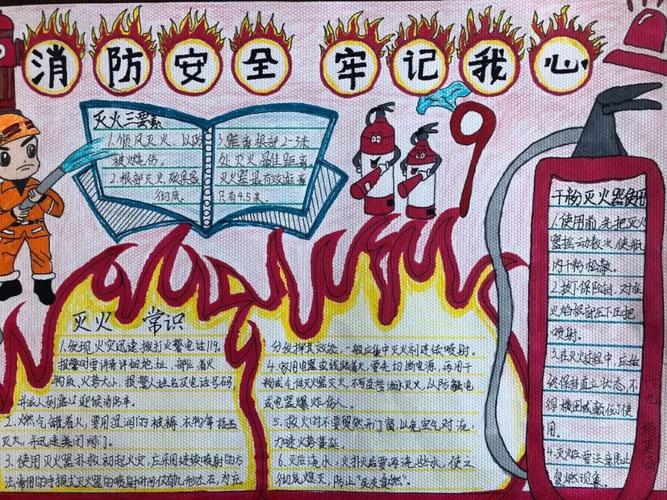 消防安全 牢记我心
灭火三要素
1.顺风灭火，以防
被烧伤。
2.根部灭火，效果最
彻底。
3.距离根部2-3米
处灭火最佳距离
灭火器最有效距离
只有4.5米.
灭火 常识
1.发现火灾迅速拨打火警电话119。
报警时要讲清详细地址、
构质、火势大小、报警人姓名及电话号码，
并派人到路口迎候消防车。
2.燃气罐着火，要用浸湿的被褥、衣物等捂盖
灭火，并迅速关闭阀门。
3.使用灭火器扑救初起火灾，应采用连续喷射的方
法常用的手提式灭火器的喷射时间仅有几秒左右，为充
分发挥其效能，一般应集中灭火剂连续喷射。
4.家用电器或线路着火，要先切断电源，再用干
粉或气体灭火器灭火，不可直接泼水灭火，以防触电
或电器爆炸伤人。
5.救火时不要贸然开门窗，以免空气对流，
加速火势蔓延。
6.灭后浇水，火扑灭后要再浇些水，使之
彻底熄灭，防止"死灰复燃"。
干粉灭火器使用
1.使用前，先把灭火
器摇动数次，使瓶
内干粉松散。
2.拔下保险销，对准
火焰根部压下压把
喷射。
3.在灭火过程中，应始
终保持直立状态，不
得横卧或颠倒使
用。
4.灭火后要注意防止
复燃现象。